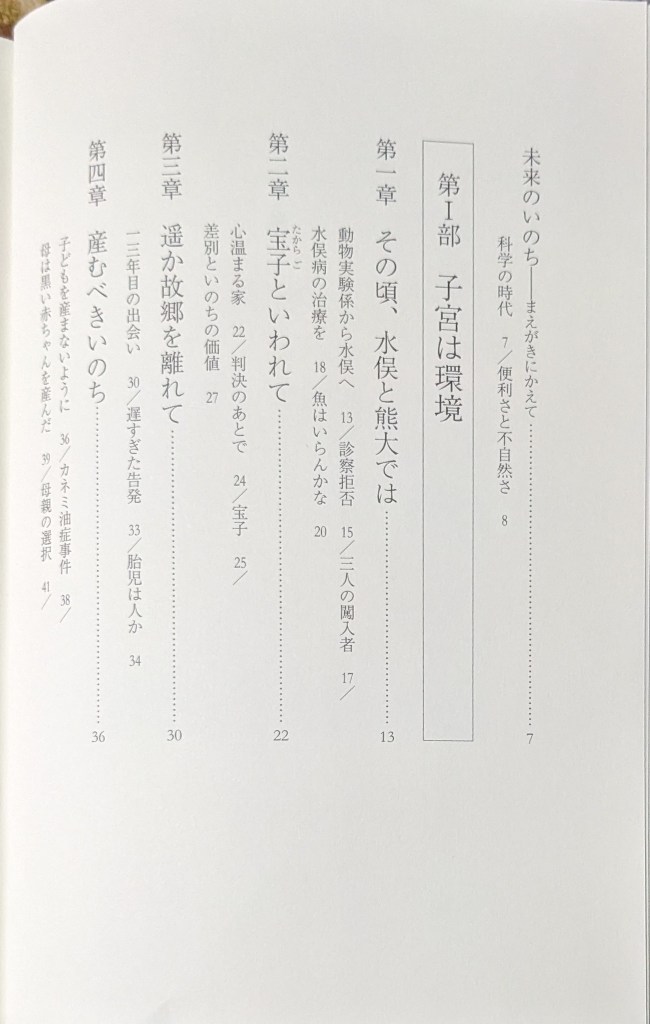 未来のいのち――まえがきにかえて……………………………………7
科学の時代 7／便利さと不自然さ 8
第Ⅰ部 子宮は環境
第一章 その頃、水俣と熊大では……………………………………13
動物実験係から水俣へ 13／診察拒否 15／三人の闖入者 17／
水俣病の治療を 18／魚はいらんかな 20
第二章 宝子といわれて……………………………………22
たからご
心温まる家 22／判決のあとで 24／宝子 25／
差別といのちの価値 27
第三章 遥か故郷を離れて……………………………………30
一三年目の出会い 30／遅すぎた告発 33／胎児は人か 34
第四章 産むべきいのち……………………………………36
子どもを産まないように 36／カネミ油症事件 38／
母は黒い赤ちゃんを産んだ 39／母親の選択 41／